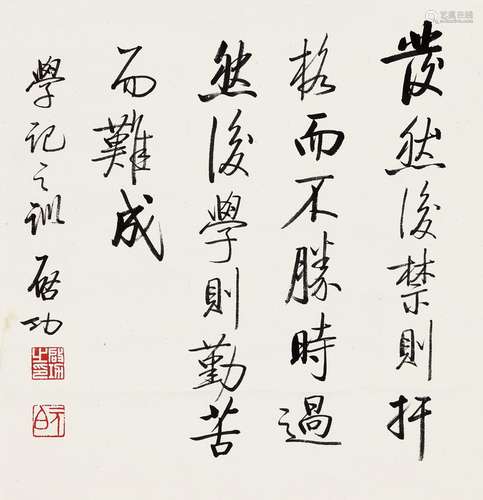 發然後禁則扞
格而不勝時過
然後學則勤苦
而難成
學記之訓 啓功